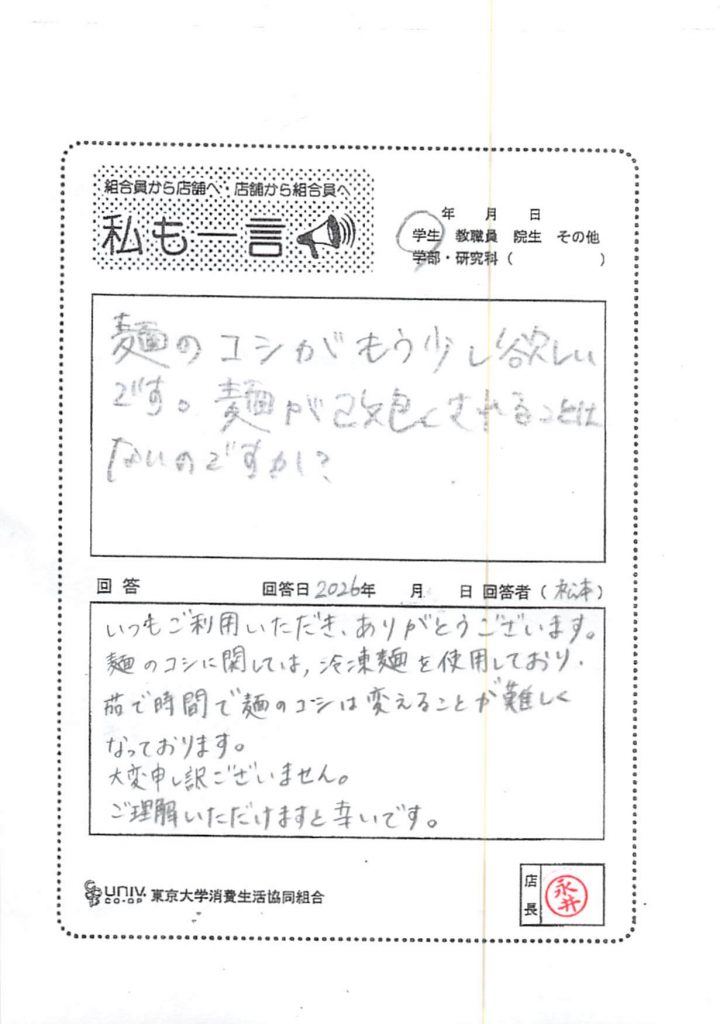 組合員から店舗へ・店舗から組合員へ
私も一言
年 月 日
学生 教職員 院生 その他
学部・研究科( )
麺のコシがもう少し欲しい
です。麺が改良されることは
ないのですか?
回答 回答日2026年 月 日 回答者(松本)
いつもご利用いただき、ありがとうございます。
麺のコシに関しては、冷凍麺を使用しており、
茹で時間で麺のコシは変えることが難しく
なっております。
大変申し訳ございません。
ご理解いただけますと幸いです。
UNIV. CO-OP 東京大学消費生活協同組合
店長
永井